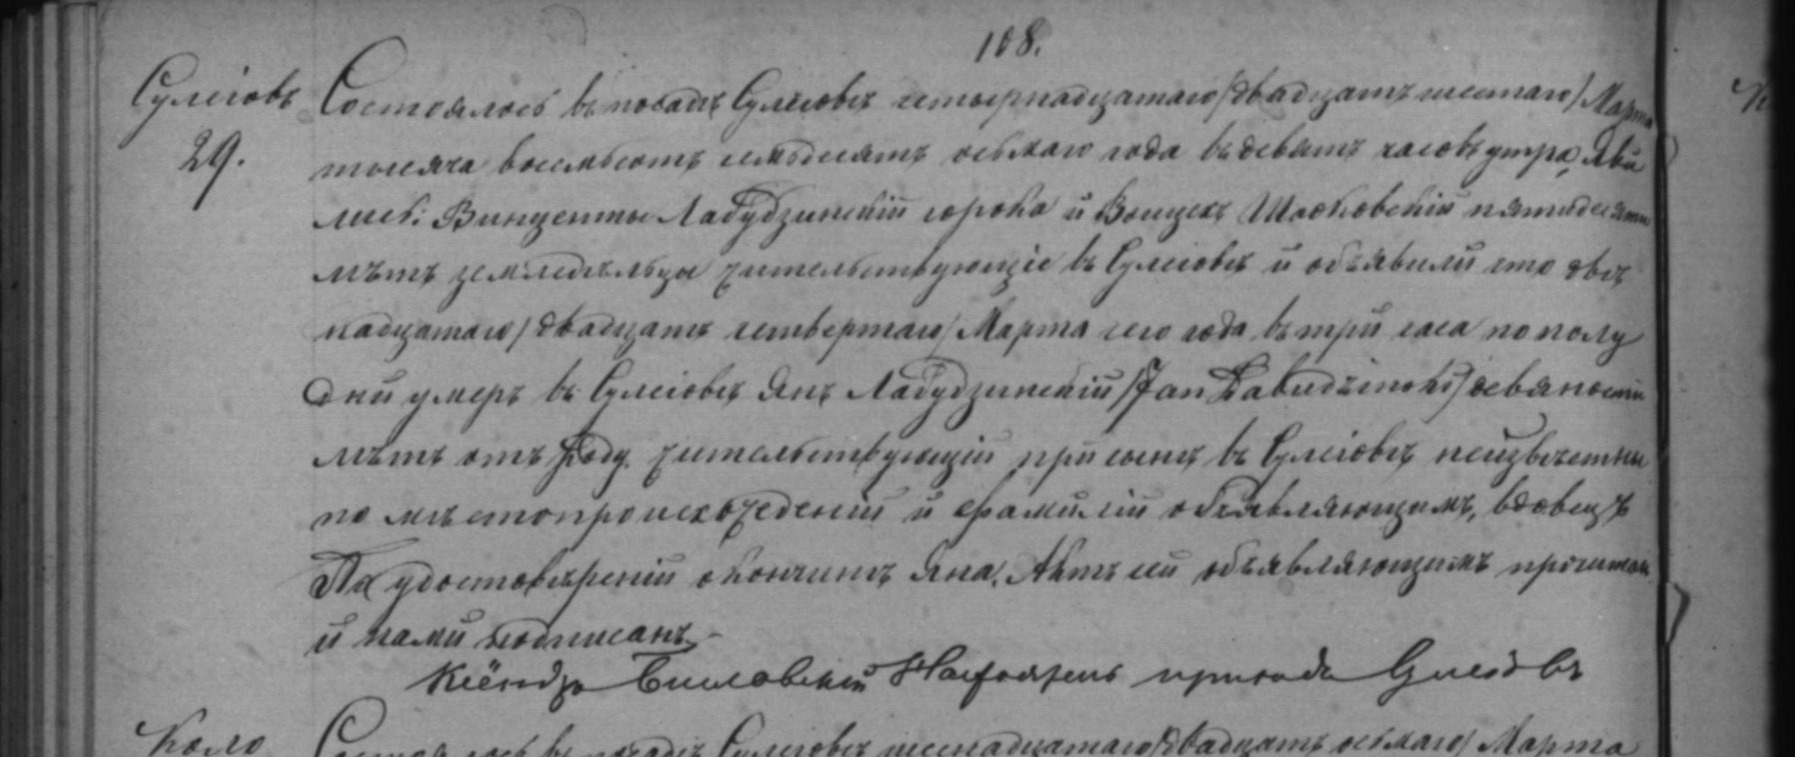 108.
Сулеіовъ
29.
Состоялось въ посадѣ Сулеіовѣ четырнадцатаго /двадцать шестаго/ Марта
тысяча восемьсотъ семьдесятъ осьмаго года въ девять часовъ утра, Яви
лись: Винценты Лабудзинскій сорока и Войцехъ пятидесяти
лѣтъ земледѣльцы жительствующіе въ Сулеіовѣ и объявили что двѣ
надцатаго / двадцать четвертаго / Марта сего года въ три часа по полу
дни умеръ въ Сулеіовѣ Янъ Лабудзинскій /Jan Łabudziński/ девяности
лѣтъ отъ роду жительствующій при сынѣ въ Сулеіовѣ неизвѣстны
по мѣстопроисхожденіи и фамиліи объявляющимъ, вдовецъ
По удостовѣреніи о кончинѣ Яна, Актъ сей объявляющимъ прочитанъ
и нами подписанъ
Ксёндзъ Настоятель прихода Сулеіовъ
Коло
Состоялось въ посадѣ Сулеіовѣ шестнадцатаго /двадцать осьмаго/ Марта